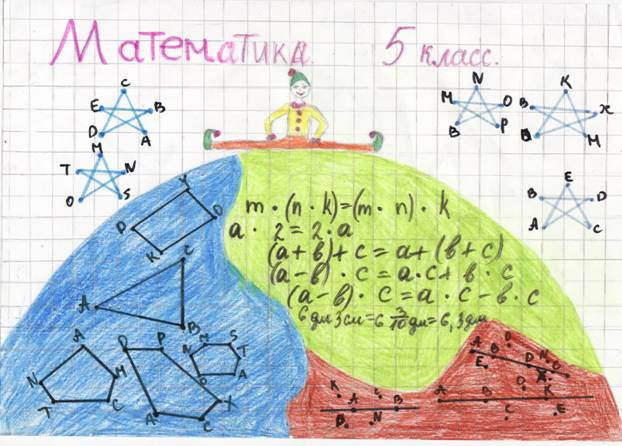 Математика 5 класс.
C
E B
D A
M
T N
O S
N
M O
B P
K
B X
M
E
B D
A C
m · (n · k) = (m · n) · k
a · 2 = 2 · a
(a + b) + c = a + (b + c)
(a - b) · c = a · c + b · c
(a - b) · c = a · c - b · c
6 дм 3 см = 6 3/10 дм = 6,3 дм
Y
D O
K
C
A
B
A
N M
T C
D P
X
A C
M S
N T
A
K C
A B
B N
A B
E
A B K
C E